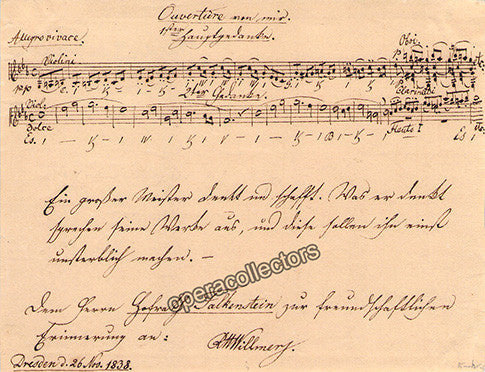 Ouverture von mir.
1ster Hauptgedanke.
Allegro vivace.
Violini
Oboi
pp
Clarinetti
2ter Gedanke.
Viola
Dolce
Flaute I
Es.
Ein großer Meister denkt und schafft. Was er denkt
sprechen seine Werke aus, und diese sollen ihn einst
unsterblich machen. —
operacollectors
Dem Herrn Hofrath Falkenstein zur freundschaftlichen
Erinnerung an:
Willmers.
Dresden d. 26 Nov. 1838.